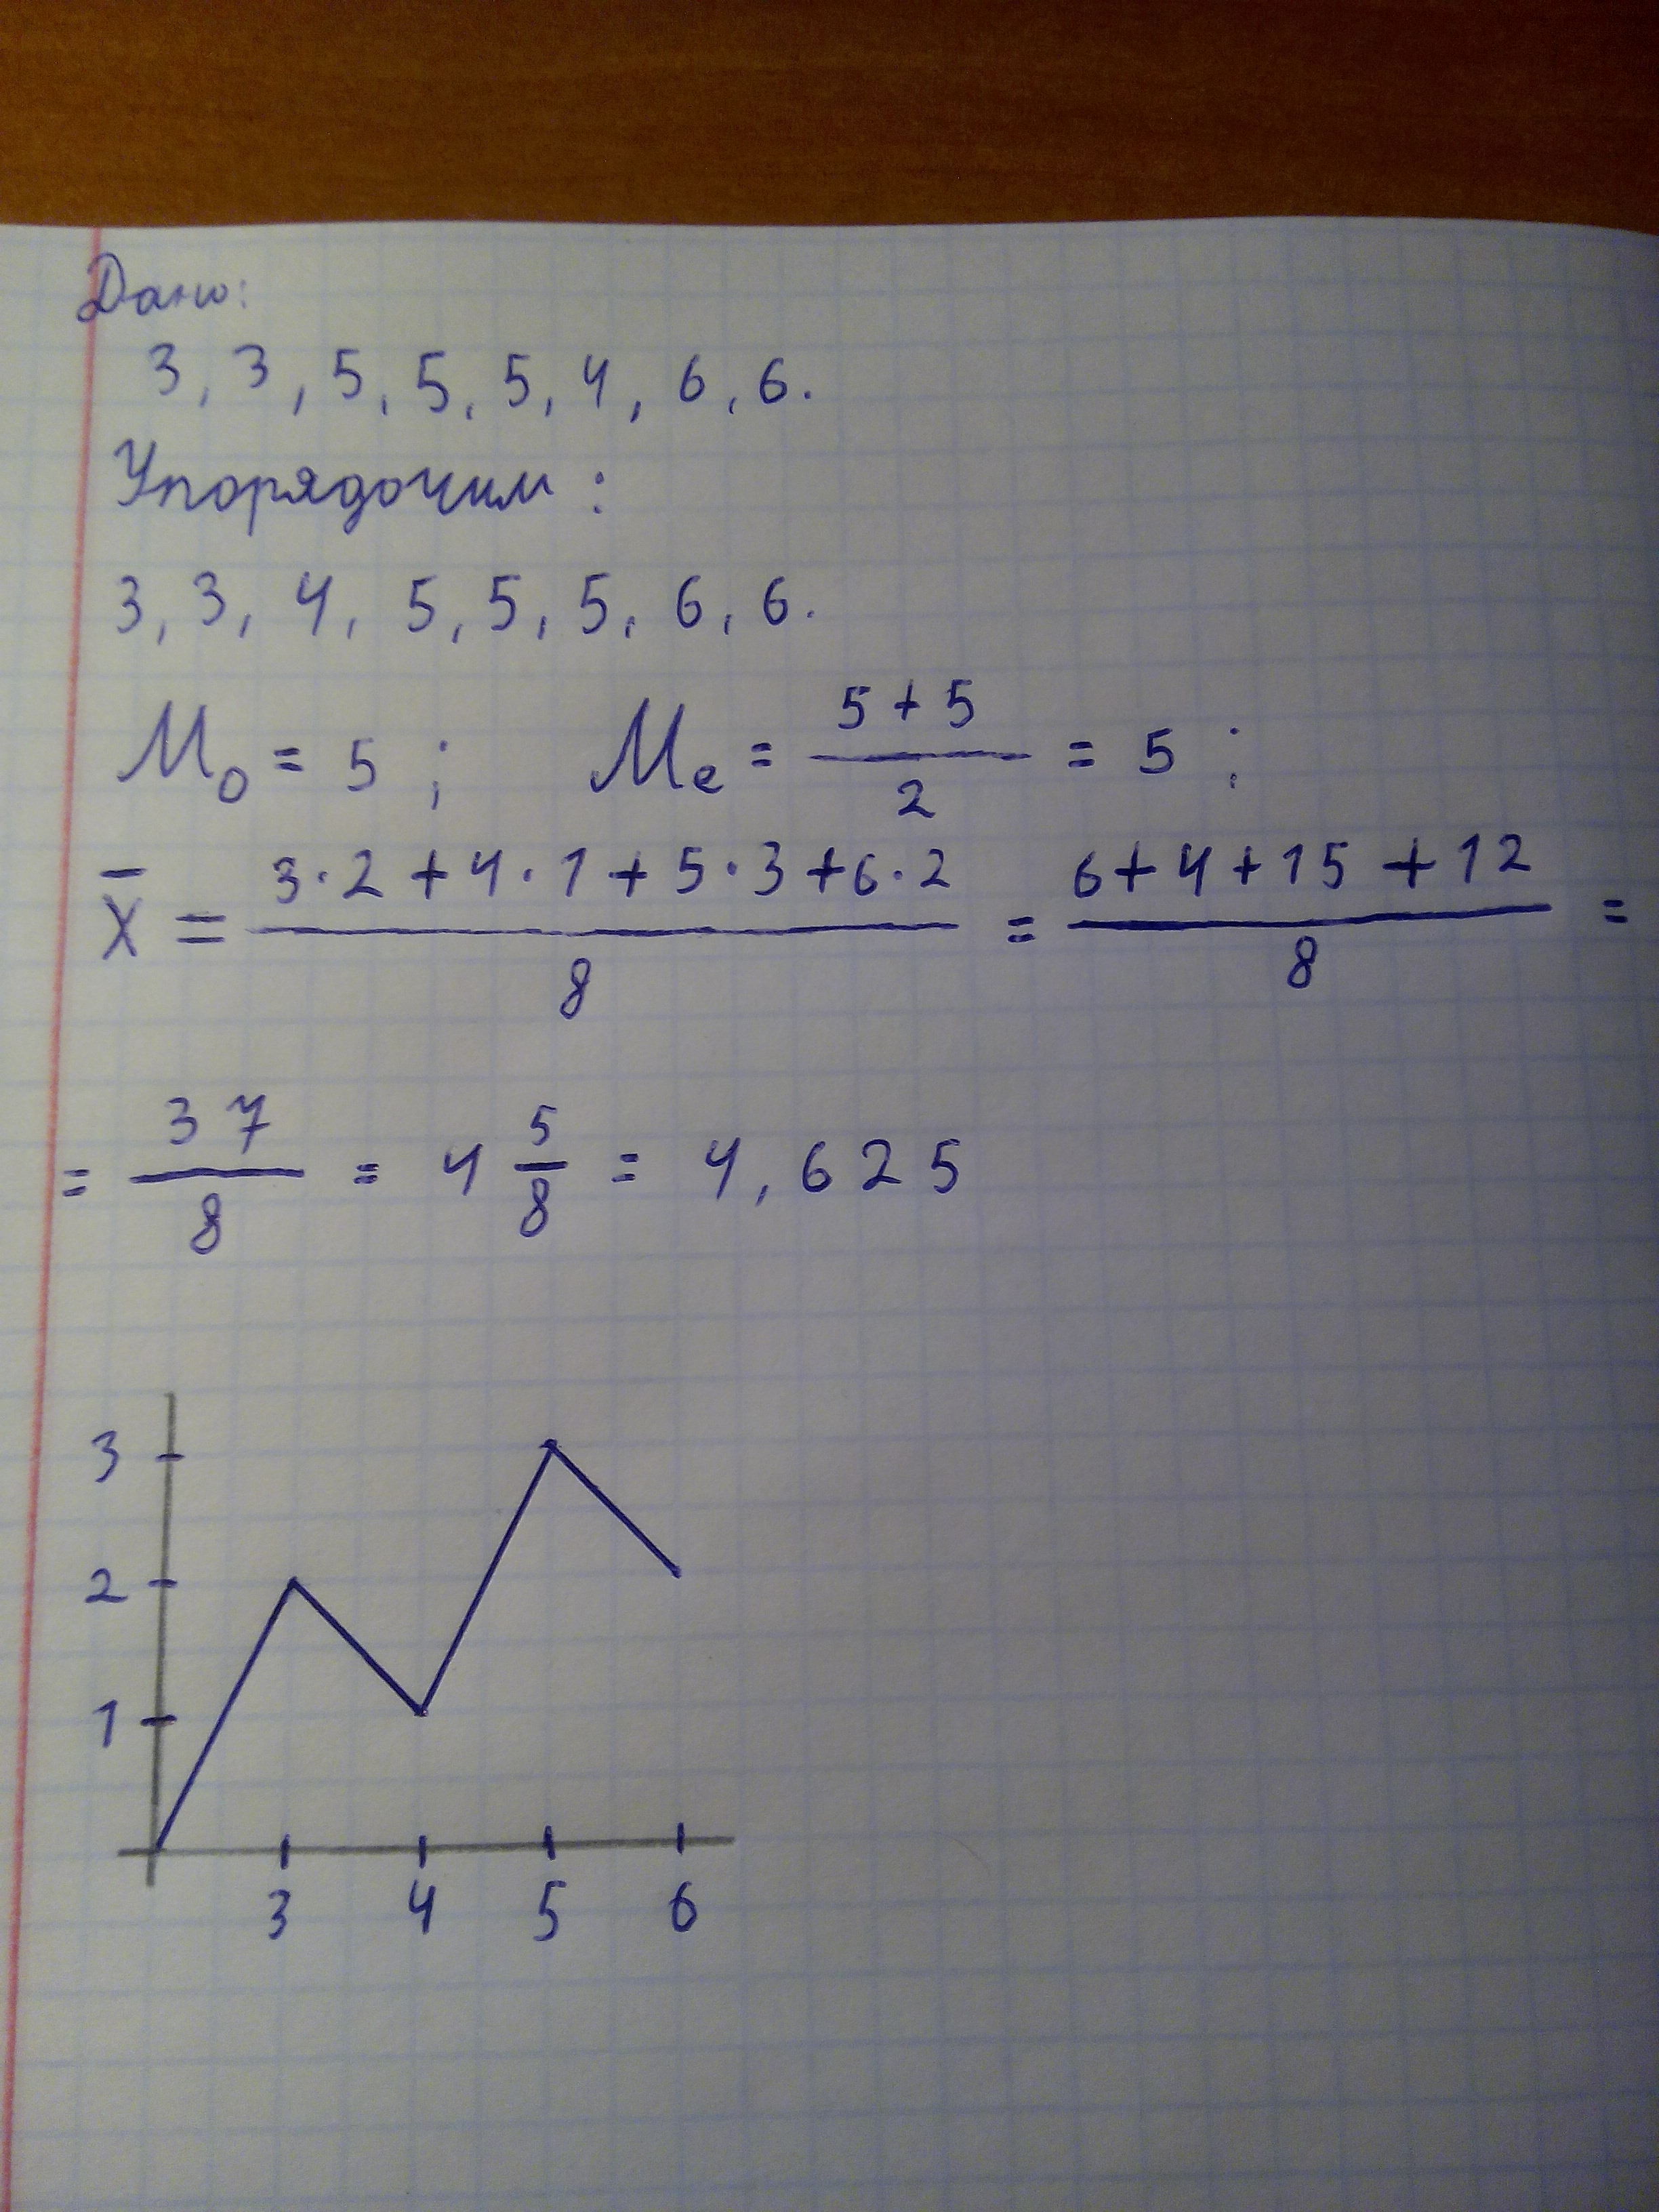 Дано:
3, 3, 5, 5, 5, 4, 6, 6.
Упорядочим:
3, 3, 4, 5, 5, 5, 6, 6.
Mo = 5; Me = (5+5)/2 = 5;
x̄ = (3·2+4·1+5·3+6·2)/8 = (6+4+15+12)/8 =
= 37/8 = 4 5/8 = 4,625
3
2
1
3 4 5 6